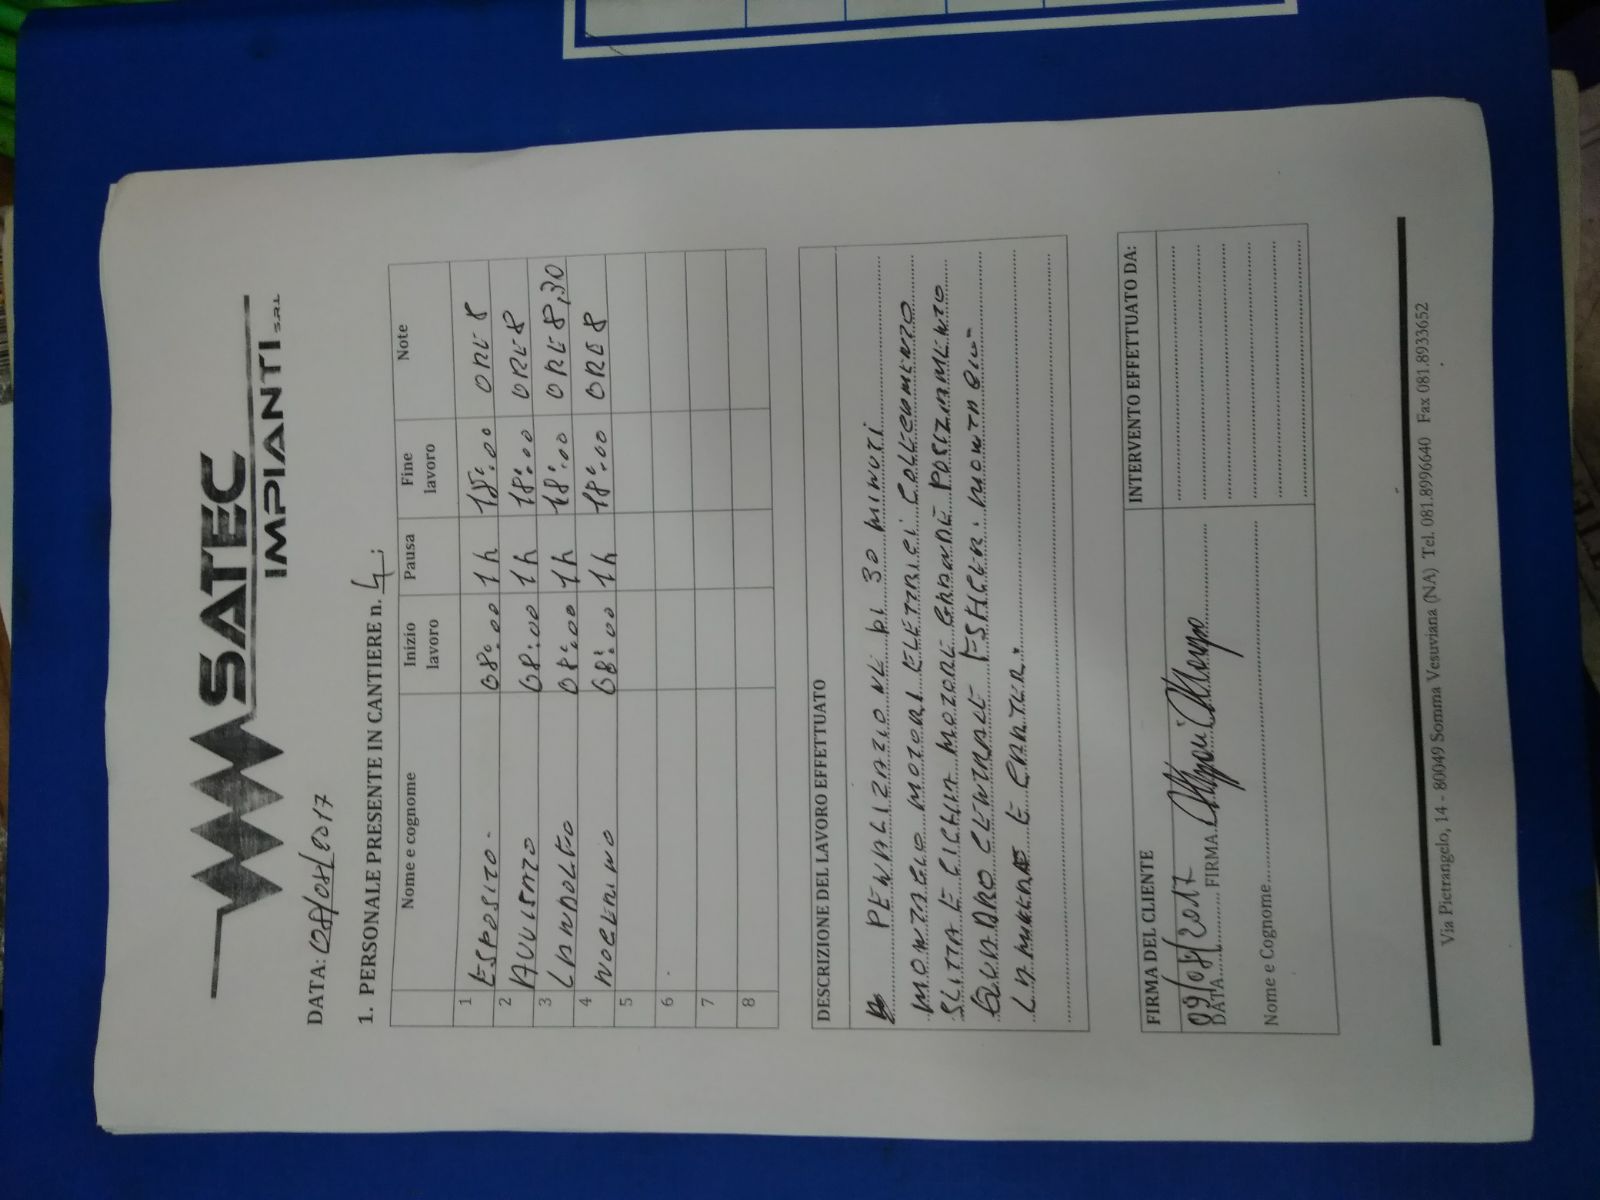 SATEC
IMPIANTI S.R.L.
DATA: 08/08/2017
1. PERSONALE PRESENTE IN CANTIERE n. 4
Nome e cognome Inizio lavoro Pausa Fine lavoro Note
1 ESPOSITO 08:00 1h 18:00 ORE 8
2 08:00 1h 18:00 ORE 8
3 LANDOLFO 08:00 1h 18:00 ORE 8,30
4 NOCERINO 08:00 1h 18:00 ORE 8
5
6
7
8
DESCRIZIONE DEL LAVORO EFFETTUATO
PENALIZAZIONE DI 30 MINUTI
MONTAGIO MOTORI ELETTRICI COLLEGAMENTO
SLITTA E MOTORE GRANDE POSIZIAMENTO
QUADRO CENTRALE
E CARTER.
FIRMA DEL CLIENTE INTERVENTO EFFETTUATO DA:
DATA 09/08/2017 FIRMA
Nome e Cognome
Via Pietrangelo, 14 - 80049 Somma Vesuviana (NA) Tel. 081.8996640 Fax 081.8933652